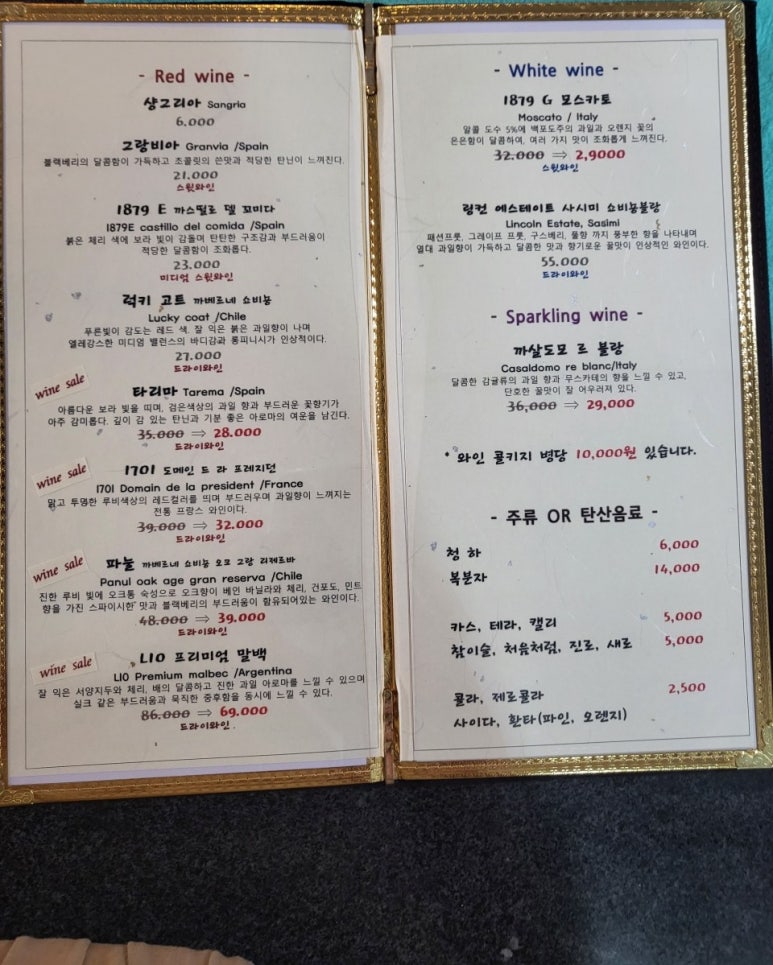 - Red wine -
샹그리아 Sangria
6.000
그랑비아 Granvia /Spain
블랙베리의 달콤함이 가득하고 초콜릿의 쓴맛과 적당한 탄닌이 느껴진다.
21.000
스윗와인
1879 E 까스띨로 델 꼬미다
1879E castillo del comida /Spain
붉은 체리 색에 보라 빛이 감돌며 탄탄한 구조감과 부드러움이
적당한 달콤함이 조화롭다.
23.000
미디엄 스윗와인
럭키 고트 까베르네 쇼비뇽
Lucky coat /Chile
푸른빛이 감도는 레드 색. 잘 익은 붉은 과일향이 나며
엘레강스한 미디엄 밸런스의 바디감과 롱피니시가 인상적이다.
27.000
드라이와인
wine sale
타리마 Tarema /Spain
아름다운 보라 빛을 띠며, 검은색상의 과일 향과 부드러운 꽃향기가
아주 감미롭다. 깊이 감 있는 탄닌과 기분 좋은 아로마의 여운을 남긴다.
35.000 ⇒ 28.000
드라이와인
wine sale
1701 도메인 드 라 프레지던
1701 Domain de la president /France
맑고 투명한 루비색상의 레드컬러를 띄며 부드러우며 과일향이 느껴지는
전통 프랑스 와인이다.
39.000 ⇒ 32.000
드라이와인
wine sale
파눌 까베르네 쇼비뇽 오크 그랑 리제르바
Panul oak age gran reserva /Chile
진한 루비 빛에 오크통 숙성으로 오크향이 베인 바닐라와 체리, 건포도, 민트
향을 가진 스파이시한 맛과 블랙베리의 부드러움이 함유되어있는 와인이다.
48.000 ⇒ 39.000
드라이와인
wine sale
L10 프리미엄 말백
L10 Premium malbec /Argentina
잘 익은 서양자두와 체리, 배의 달콤하고 진한 과일 아로마를 느낄 수 있으며
실크 같은 부드러움과 묵직한 중후함을 동시에 느낄 수 있다.
86.000 ⇒ 69.000
드라이와인
- White wine -
1879 G 모스카토
Moscato / Italy
알콜 도수 5%에 백포도주의 과일과 오렌지 꽃의
은은함이 달콤하며, 여러 가지 맛이 조화롭게 느껴진다.
32.000 ⇒ 2,9000
스윗와인
링컨 에스테이트 사시미 쇼비뇽블랑
Lincoln Estate, Sasimi
패션프룻, 그레이프 프룻, 구스베리, 풀향 까지 풍부한 향을 나타내며
열대 과일향이 가득하고 달콤한 맛과 향기로운 꿀맛이 인상적인 와인이다.
55.000
드라이와인
- Sparkling wine -
까살도모 르 블랑
Casaldomo re blanc/Italy
달콤한 감귤류의 과일 향과 무스카테의 향을 느낄 수 있고,
단호한 꿀맛이 잘 어우러져 있다.
36,000 ⇒ 29,000
* 와인 콜키지 병당 10,000원 있습니다.
- 주류 OR 탄산음료 -
청 하 6,000
복분자 14,000
카스, 테라, 캘리 5,000
참이슬, 처음처럼, 진로, 새로 5,000
콜라, 제로콜라 2,500
사이다, 환타(파인, 오렌지)